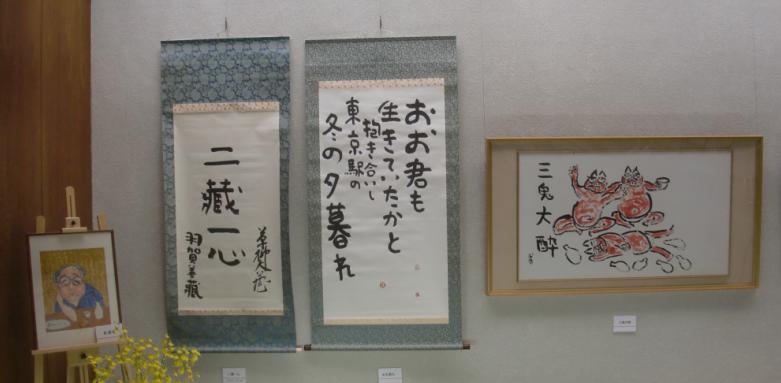 二藏一心
羽賀善藏
おお君も
生きていたかと
抱き合いし
東京駅の
冬の夕暮れ
三鬼大酔